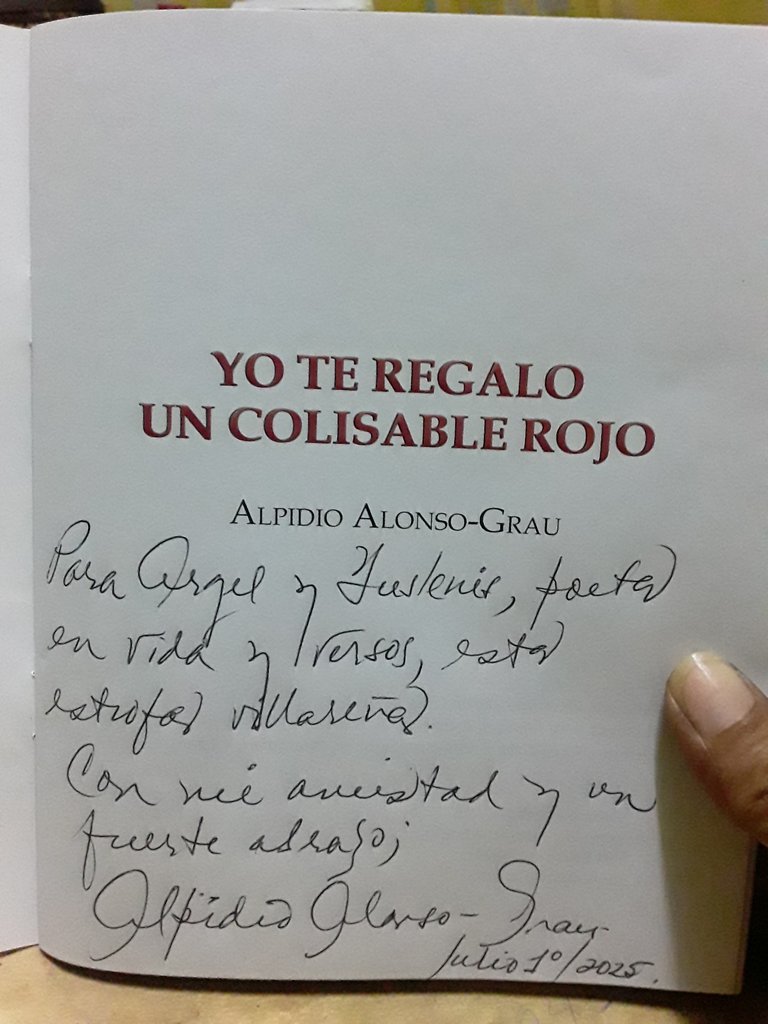 YO TE REGALO
UN COLISABLE ROJO
ALPIDIO ALONSO-GRAU
Para Argel y Yuslenis, poetas
en vida y versos, estas
estrofas villareñas.
Con mi amistad y un
fuerte abrazo;
Alpidio Alonso-Grau
Julio 1º/2025.